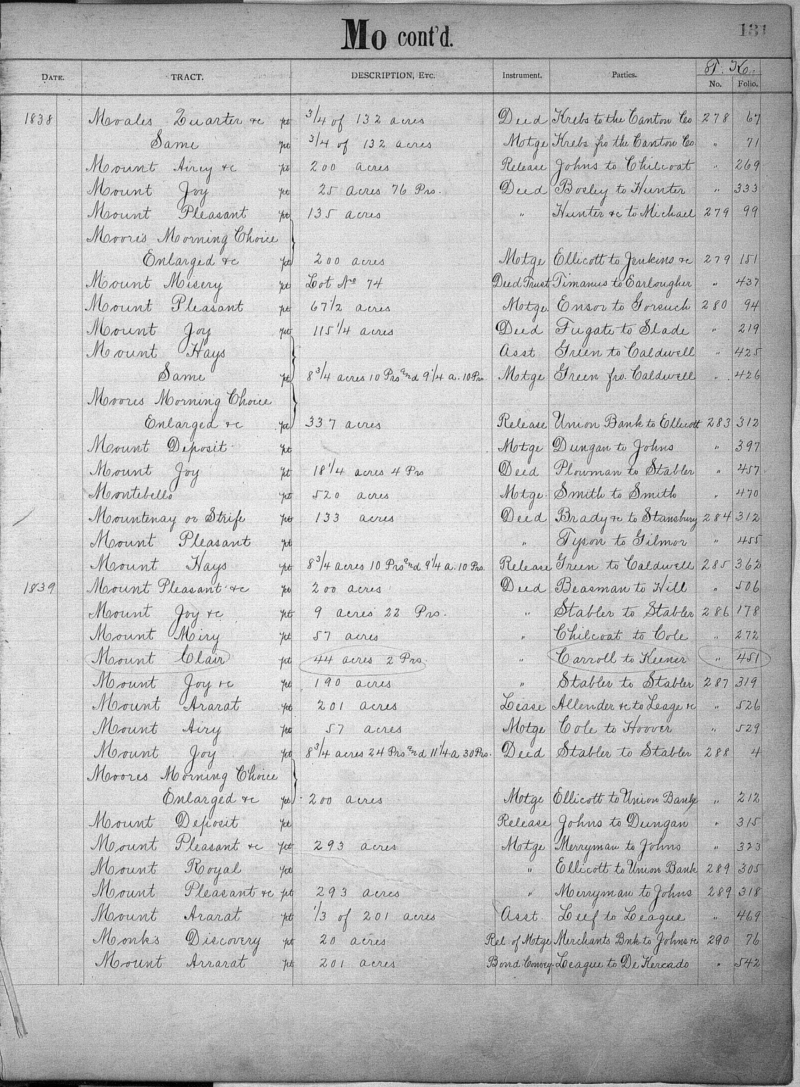 Mo cont'd.
131
T. K.
DATE. TRACT. DESCRIPTION, ETC. Instrument. Parties. No. Folio.
1838 Moales Quarter &c pt 3/4 of 132 acres Deed Krebs to the Canton Co 278 67
Same pt 3/4 of 132 acres Motge Krebs fro the Canton Co " 71
Mount Airey &c pt 200 acres Release Johns to Chilcoat " 269
Mount Joy pt 25 acres 76 Prs. Deed Bosley to Hunter " 333
Mount Pleasant pt 135 acres " Hunter &c to Michael 279 99
Moore's Morning Choice
Enlarged &c pt 200 acres Motge Ellicott to Jenkins &c 279 151
Mount Misery pt Lot No 74 Deed Trust Timanus to Earlougher " 437
Mount Pleasant pt 67 1/2 acres Motge Ensor to Gorsuch 280 94
Mount Joy pt 115 1/4 acres Deed Fugate to Slade " 219
Mount Hays Asst Green to Caldwell " 425
Same pt 8 3/4 acres 10 Prs and 9 1/4 a. 10 Prs. Motge Green fro. Caldwell " 426
Moores Morning Choice
Enlarged &c pt 337 acres Release Union Bank to Ellicott 283 312
Mount Deposit pt Motge Dungan to Johns " 397
Mount Joy pt 18 1/4 acres 4 Prs Deed Plowman to Stabler " 457
Montebello pt 520 acres Motge Smith to Smith " 470
Mountenay or Strife pt 133 acres Deed Brady &c to Stansbury 284 312
Mount Pleasant pt " Tyson to Gilmor " 455
Mount Hays pt 8 3/4 acres 10 Prs and 9 1/4 a. 10 Prs. Release Green to Caldwell 285 362
1839 Mount Pleasant &c pt 200 acres Deed Beasman to Hill " 506
Mount Joy &c pt 9 acres 22 Prs. " Stabler to Stabler 286 178
Mount Airy pt 57 acres " Chilcoat to Cole " 272
Mount Clair pt 44 acres 2 Prs. " Carroll to Keener " 451
Mount Joy &c pt 190 acres " Stabler to Stabler 287 319
Mount Ararat pt 201 acres Lease Allender &c to Leage &c " 526
Mount Airy pt 57 acres Motge Cole to Hoover " 529
Mount Joy pt 8 3/4 acres 24 Prs and 11 1/4 a 30 Prs. Deed Stabler to Stabler 288 4
Moores Morning Choice
Enlarged &c pt 200 acres Motge Ellicott to Union Bank " 212
Mount Deposit pt Release Johns to Dungan " 315
Mount Pleasant &c pt 293 acres Motge Merryman to Johns " 323
Mount Royal pt " Ellicott to Union Bank 289 305
Mount Pleasant &c pt 293 acres " Merryman to Johns 289 318
Mount Ararat pt 1/3 of 201 acres Asst Leef to League " 469
Monks Discovery pt 20 acres Rel. of Motge Merchants Bnk to Johns &c 290 76
Mount Arrarat pt 201 acres Bond Convey League to De Kercado " 542